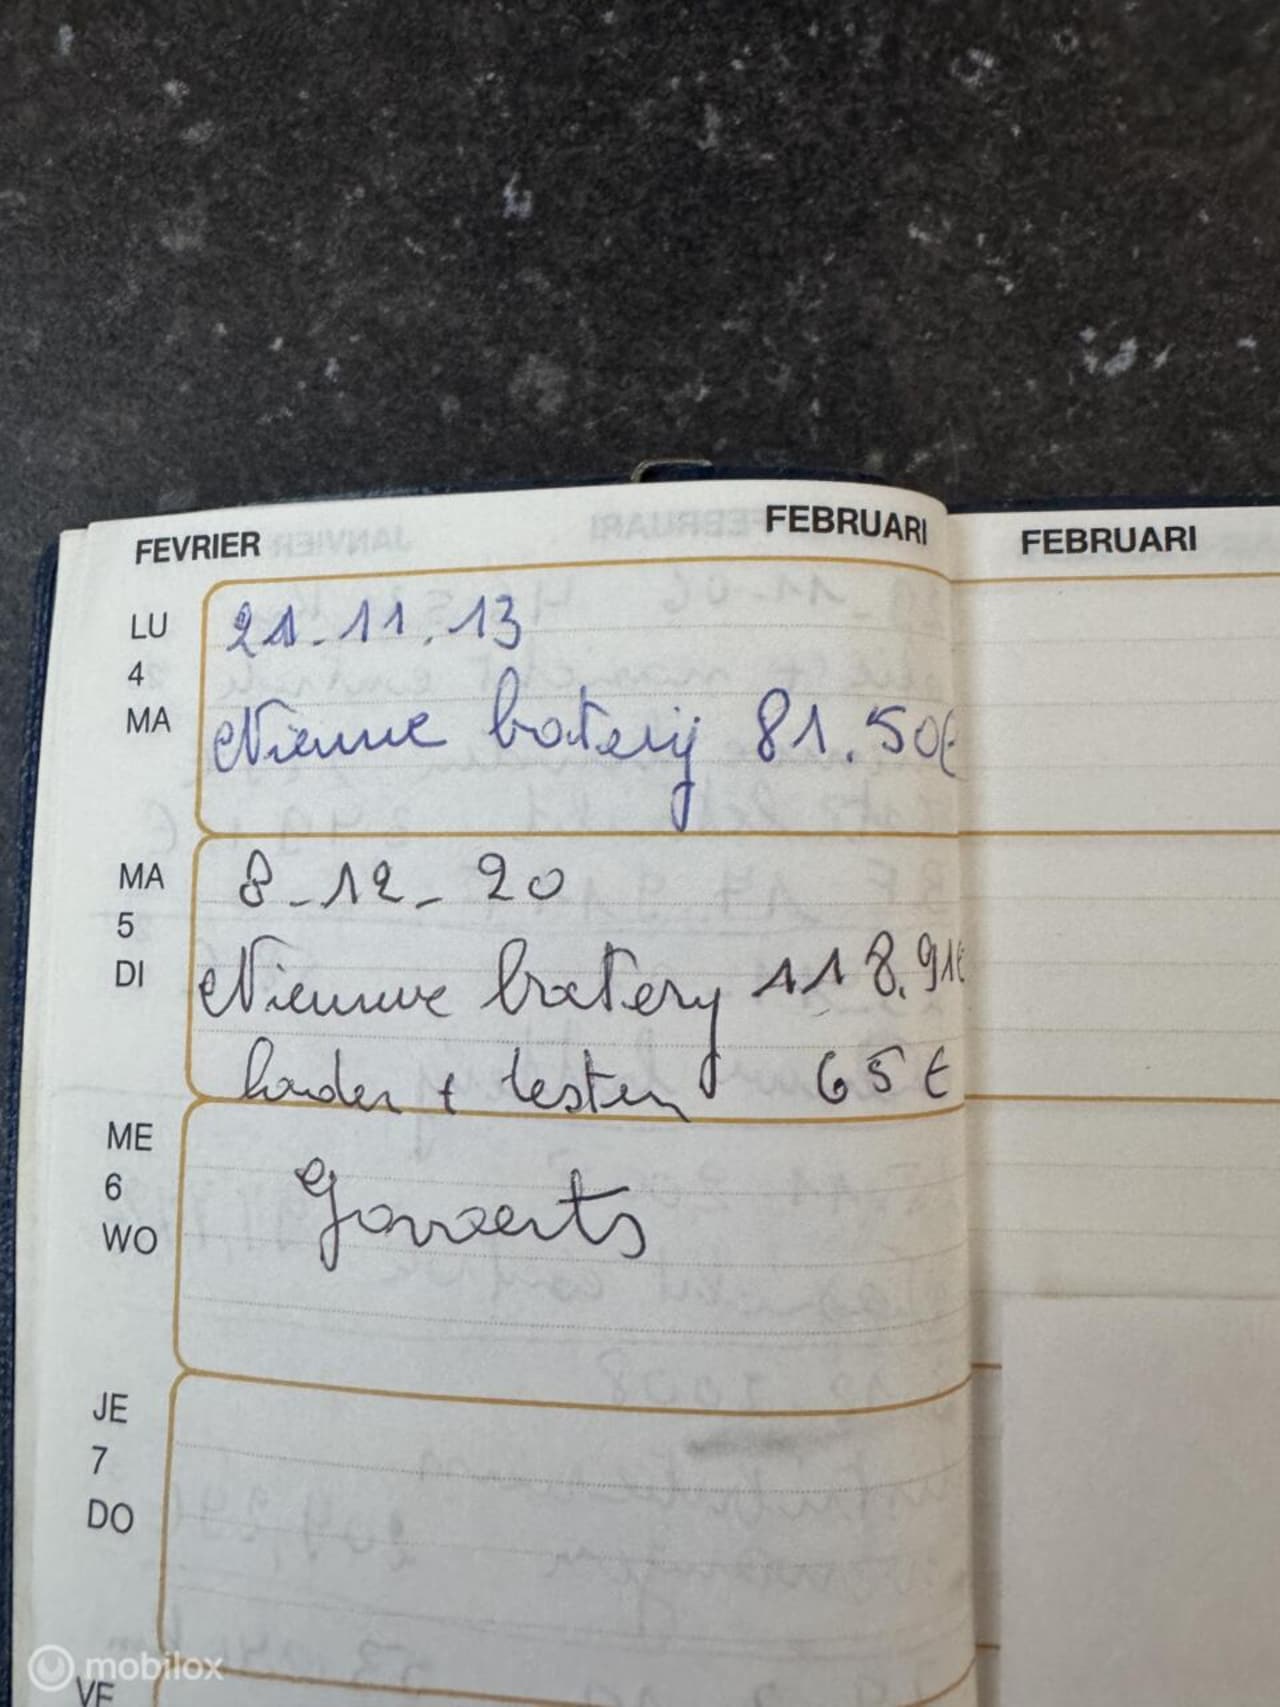 FEVRIER FEBRUARI FEBRUARI
LU
4
MA
21-11.13
Nieuwe baterij 81.50€
MA
5
DI
8-12-20
Nieuwe batery 118.91€
laden + testen 65€
ME
6
WO
Govaerts
JE
7
DO
VE
mobilox